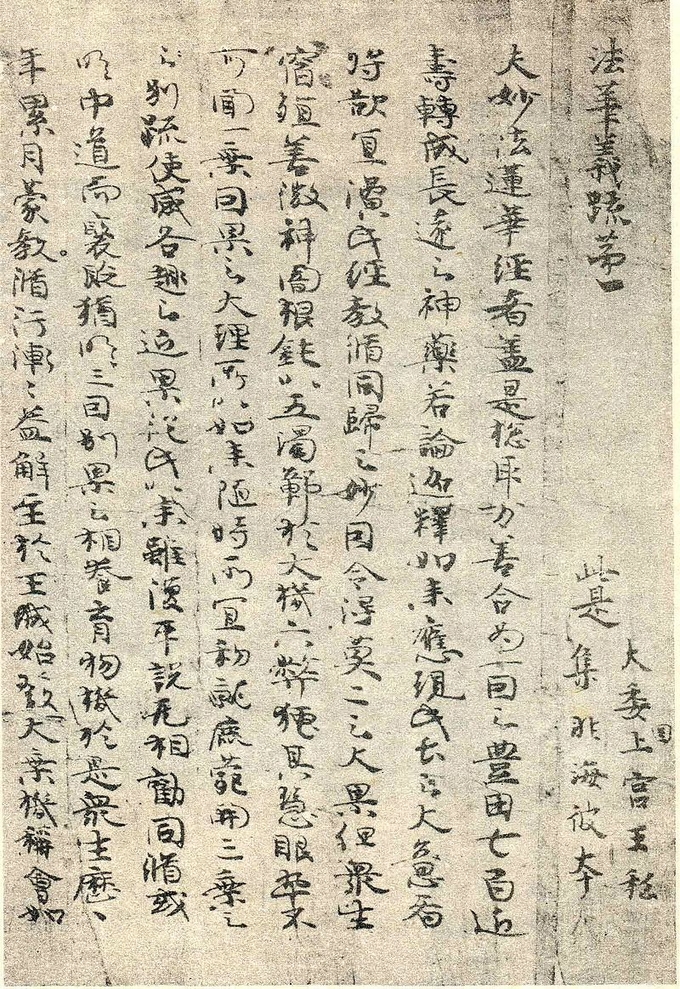 法華義疏第一
大委国上宮王私
此是集非海彼本
夫妙法蓮華經者蓋是惣取万善合為一因之豊田七百近
壽轉成長遠之神藥若論迦釋如来應現此土之大意者
将欲宜演此經教脩同歸之妙因令得莫二之大果但衆生
宿殖善微神闇根鈍以五濁鄣於大機六弊掩其慧眼卒不
可聞一乗因果之大理所以如来随時所宜初就鹿菀開三乗之
之別疏使感各趣之近果従此以来雖復平説无相勸同脩或
明中道而褒貶猶明三因別果之相養育物機於是衆生歷
年累月蒙教脩行漸々益解至於王城始發大乗機稱會如